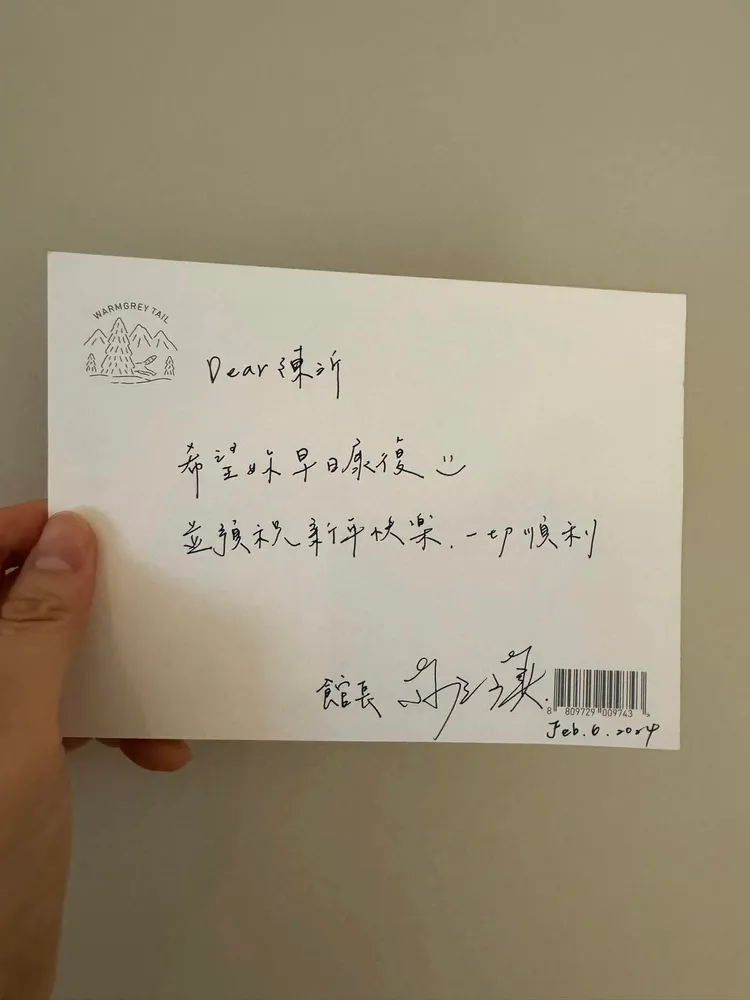 WARMGREY TAIL
Dear 陳沂
希望妳早日康復
並預祝新年快樂.一切順利
館長
8 809729 009743
Feb. 6. 2024